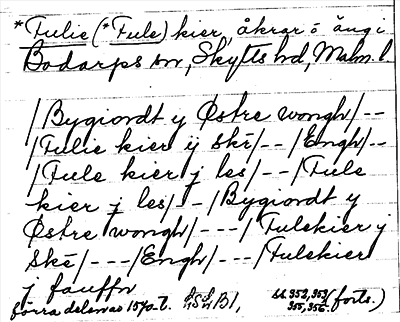 *Tulie (*Tule) kier, åkrar o äng i
Bodarps sn, Skytts hd, Malm. l
/Bygiordt y Østre wongh/--
/Tulie kier ij skē/--/Engh/--
/Tule kier j les/--/Tule
kier j les/--/Bygiordt y
Østre wongh/---/Tulskier j
skē/---/Engh/---/Tulskier
j fauffn
förra delen av 1570-t. LSH, B1, bl. 352, 353 (forts.)
355, 356